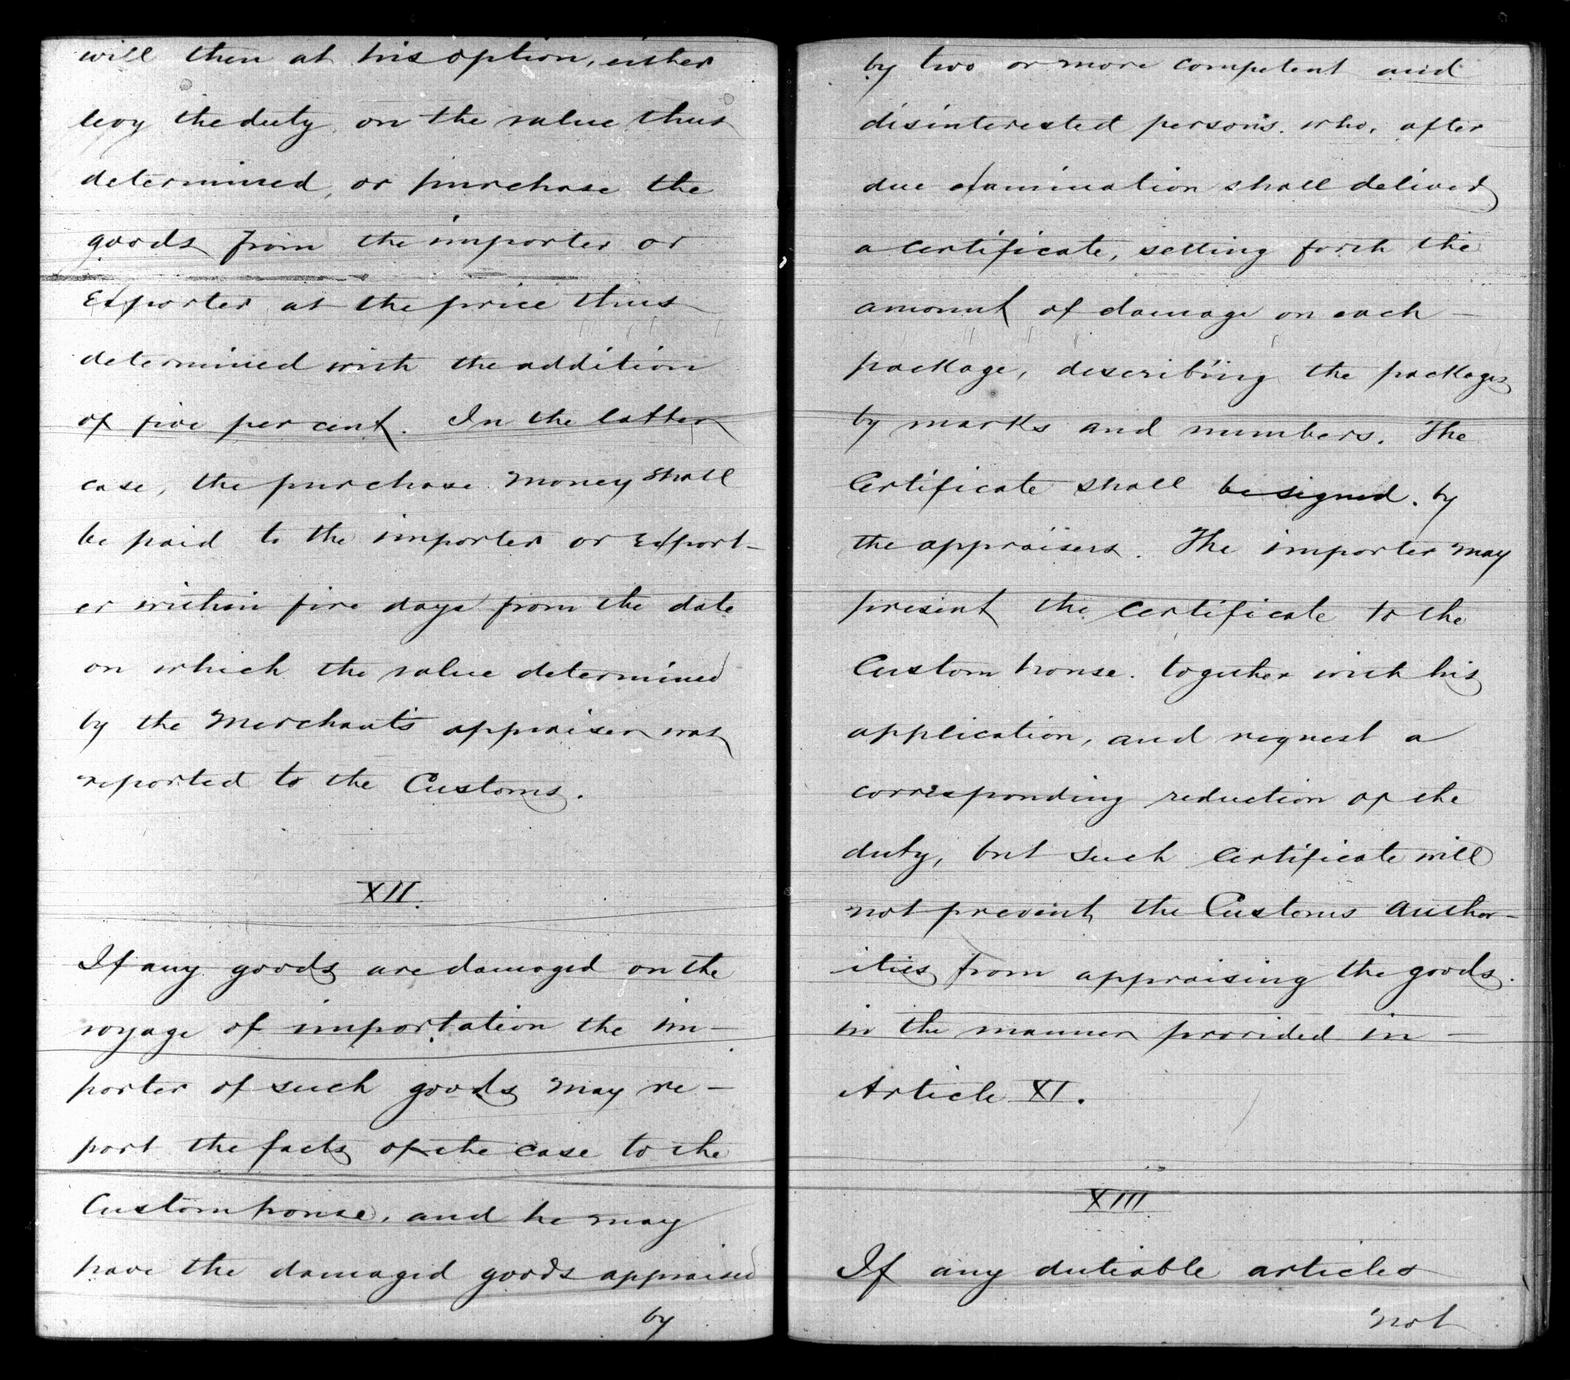 will then at his option, either
levy the duty on the value thus
determined, or purchase the
goods from the importer or
Exporter at the price thus
determined with the addition
of five per cent. In the latter
case, the purchase money shall
be paid to the importer or Export-
er within five days from the date
on which the value determined
by the Merchant's appraiser was
reported to the Customs.
XII.
If any goods are damaged on the
voyage of importation the im-
porter of such goods may re-
port the facts of the case to the
Custom house, and he may
have the damaged goods appraised
by
by two or more competent and
disinterested persons. who, after
due examination shall deliver
a certificate, setting forth the
amount of damage on each
package, describing the packages
by marks and numbers. The
Certificate shall be signed by
the appraisers. The importer may
present the certificate to the
Custom house. together with his
application, and request a
corresponding reduction of the
duty, but such certificate will
not prevent the Customs author-
ities from appraising the goods.
in the manner provided in
Article XI.
XIII
If any dutiable articles
not